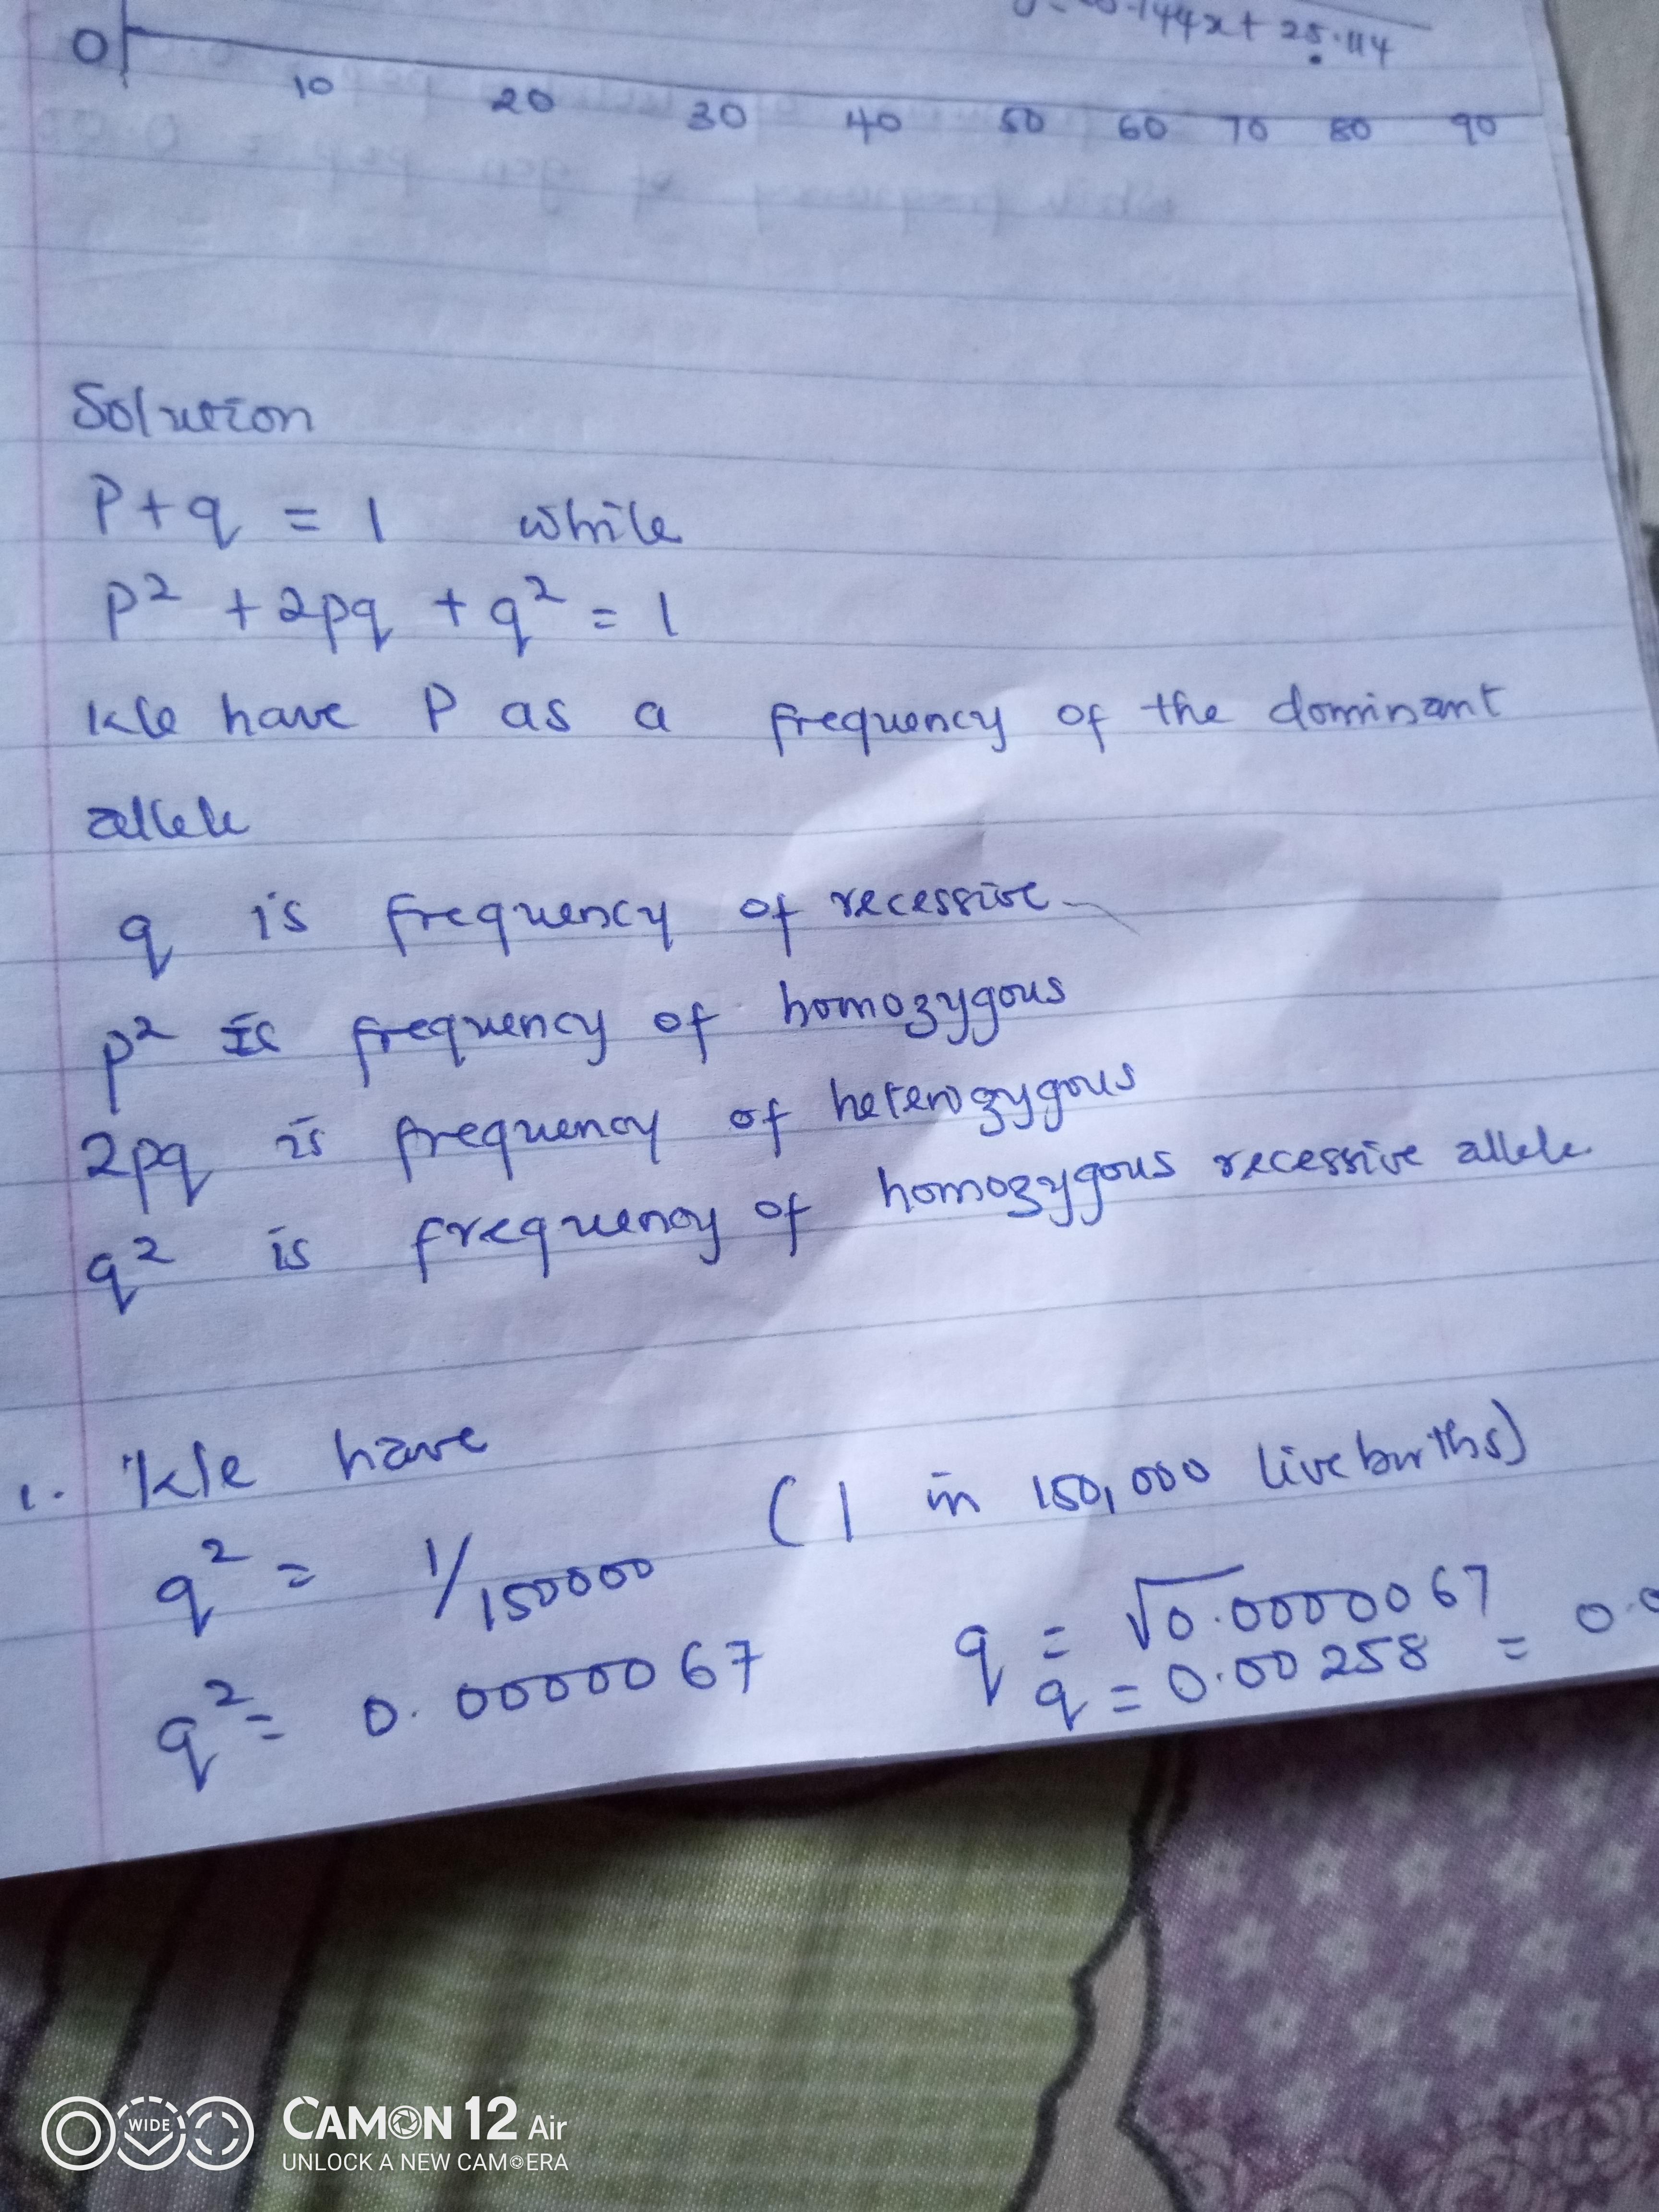 144x + 25.114
0
10 20 30 40 50 60 70 80 90
Solution
P+q = 1 while
p² + 2pq + q² = 1
We have P as a frequency of the dominant
allele
q is frequency of recessive
p² is frequency of homozygous
2pq is frequency of heterozygous
q² is frequency of homozygous recessive allele
1. We have
q² = 1/150000 (1 in 150,000 live births)
q² = 0.0000067 q = √0.0000067
q = 0.00258 = 0.0
WIDE
CAMON 12 Air
UNLOCK A NEW CAMERA